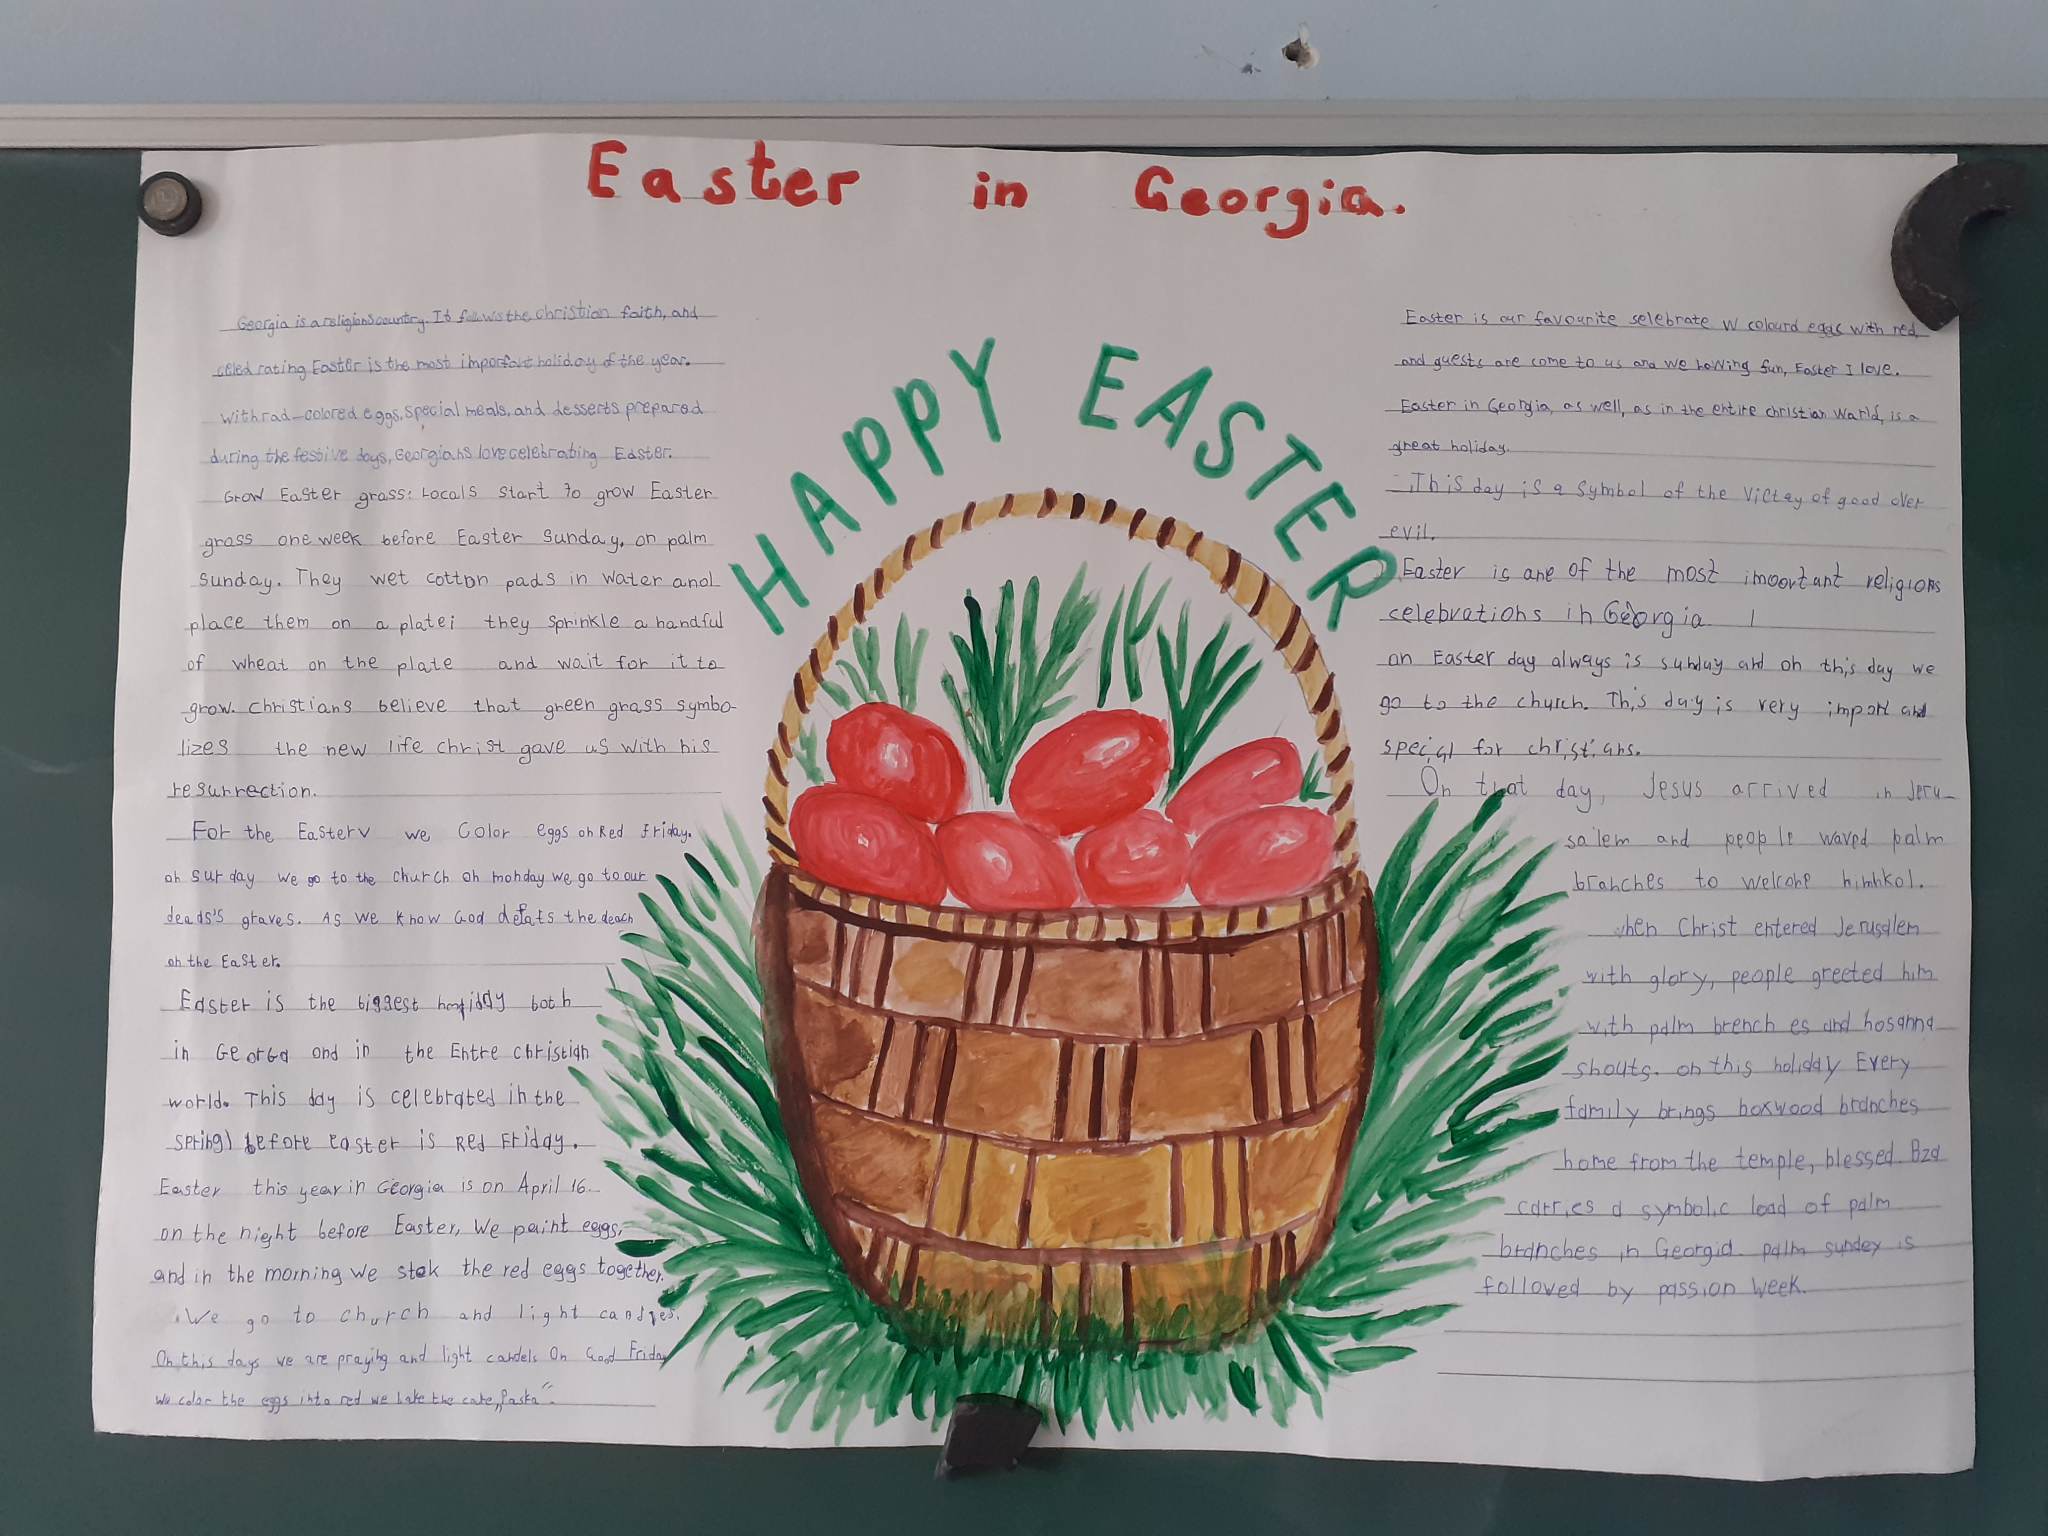 Easter in Georgia.
HAPPY EASTER
Georgia is a religions country. It follows the christian faith, and
celedrating Easter is the most important holiday of the year.
with rad-colored eggs, special meals, and desserts prepared
during the festive days, Georgians love celebrating Easter.
Grow Easter grass: Locals start to grow Easter
grass one week before Easter Sunday, on palm
sunday. They wet cotton pads in water and
place them on a plate; they sprinkle a handful
of wheat on the plate and wait for it to
grow. christians believe that green grass symbo-
lizes the new life christ gave us with his
resurrection.
For the Easterv we color eggs on Red friday.
on surday we go to the church on monday we go to our
deads's graves. As we know God defats the deach
on the Easter.
Easter is the biggest both
in Georga and in the Entre christian
world. This day is celebrated in the
spring) before easter is Red Friday.
Easter this year in Georgia is on April 16.
on the night before Easter, we paint eggs,
and in the morning we stok the red eggs together.
We go to church and light candles.
On this days we are praying and light candels On Good Friday
we color the eggs into red we bake the cake „Paska“.
Easter is our favourite selebrate w colourd eggs with red,
and guests are come to us and we howing fun, Easter I love.
Easter in Georgia, as well, as in the entire christian world, is a
great holiday.
This day is a symbol of the victey of good over
evil.
Easter is one of the most imoortant religions
celebrations in Georgia
on Easter day always is sunday and on this day we
go to the church. This day is very import and
special for christians.
On that day, Jesus arrived in Jeru-
salem and people waved palm
branches to welcome
when Christ entered Jerusalem
with glory, people greeted him
with palm brench es and hosanna
shouts. on this holiday Every
family brings boxwood branches
home from the temple, blessed. Bza
carries a symbolic load of palm
branches in Georgia. palm sundey is
followed by passion week.